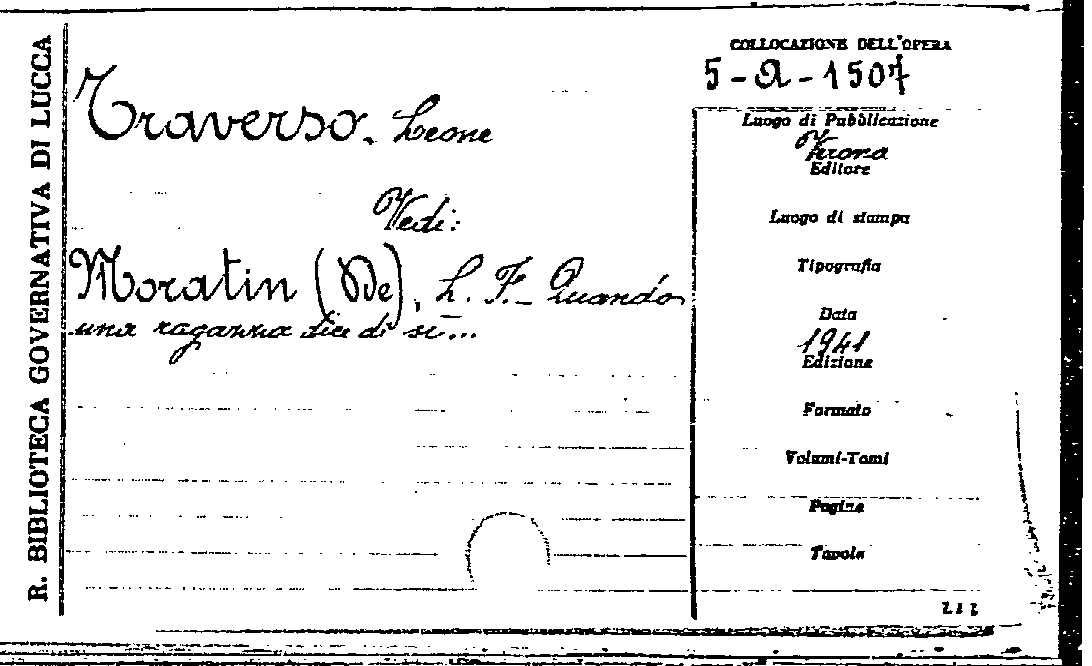 R. BIBLIOTECA GOVERNATIVA DI LUCCA
Traverso. Leone
Vedi:
Moratin (De), L. F. - Quando
una ragazza dice di sì...
COLLOCAZIONE DELL'OPERA
5-A-1507
Luogo di Pubblicazione
Verona
Editore
Luogo di stampa
Tipografia
Data
1941
Edizione
Formato
Volumi-Tomi
Pagine
Tavole